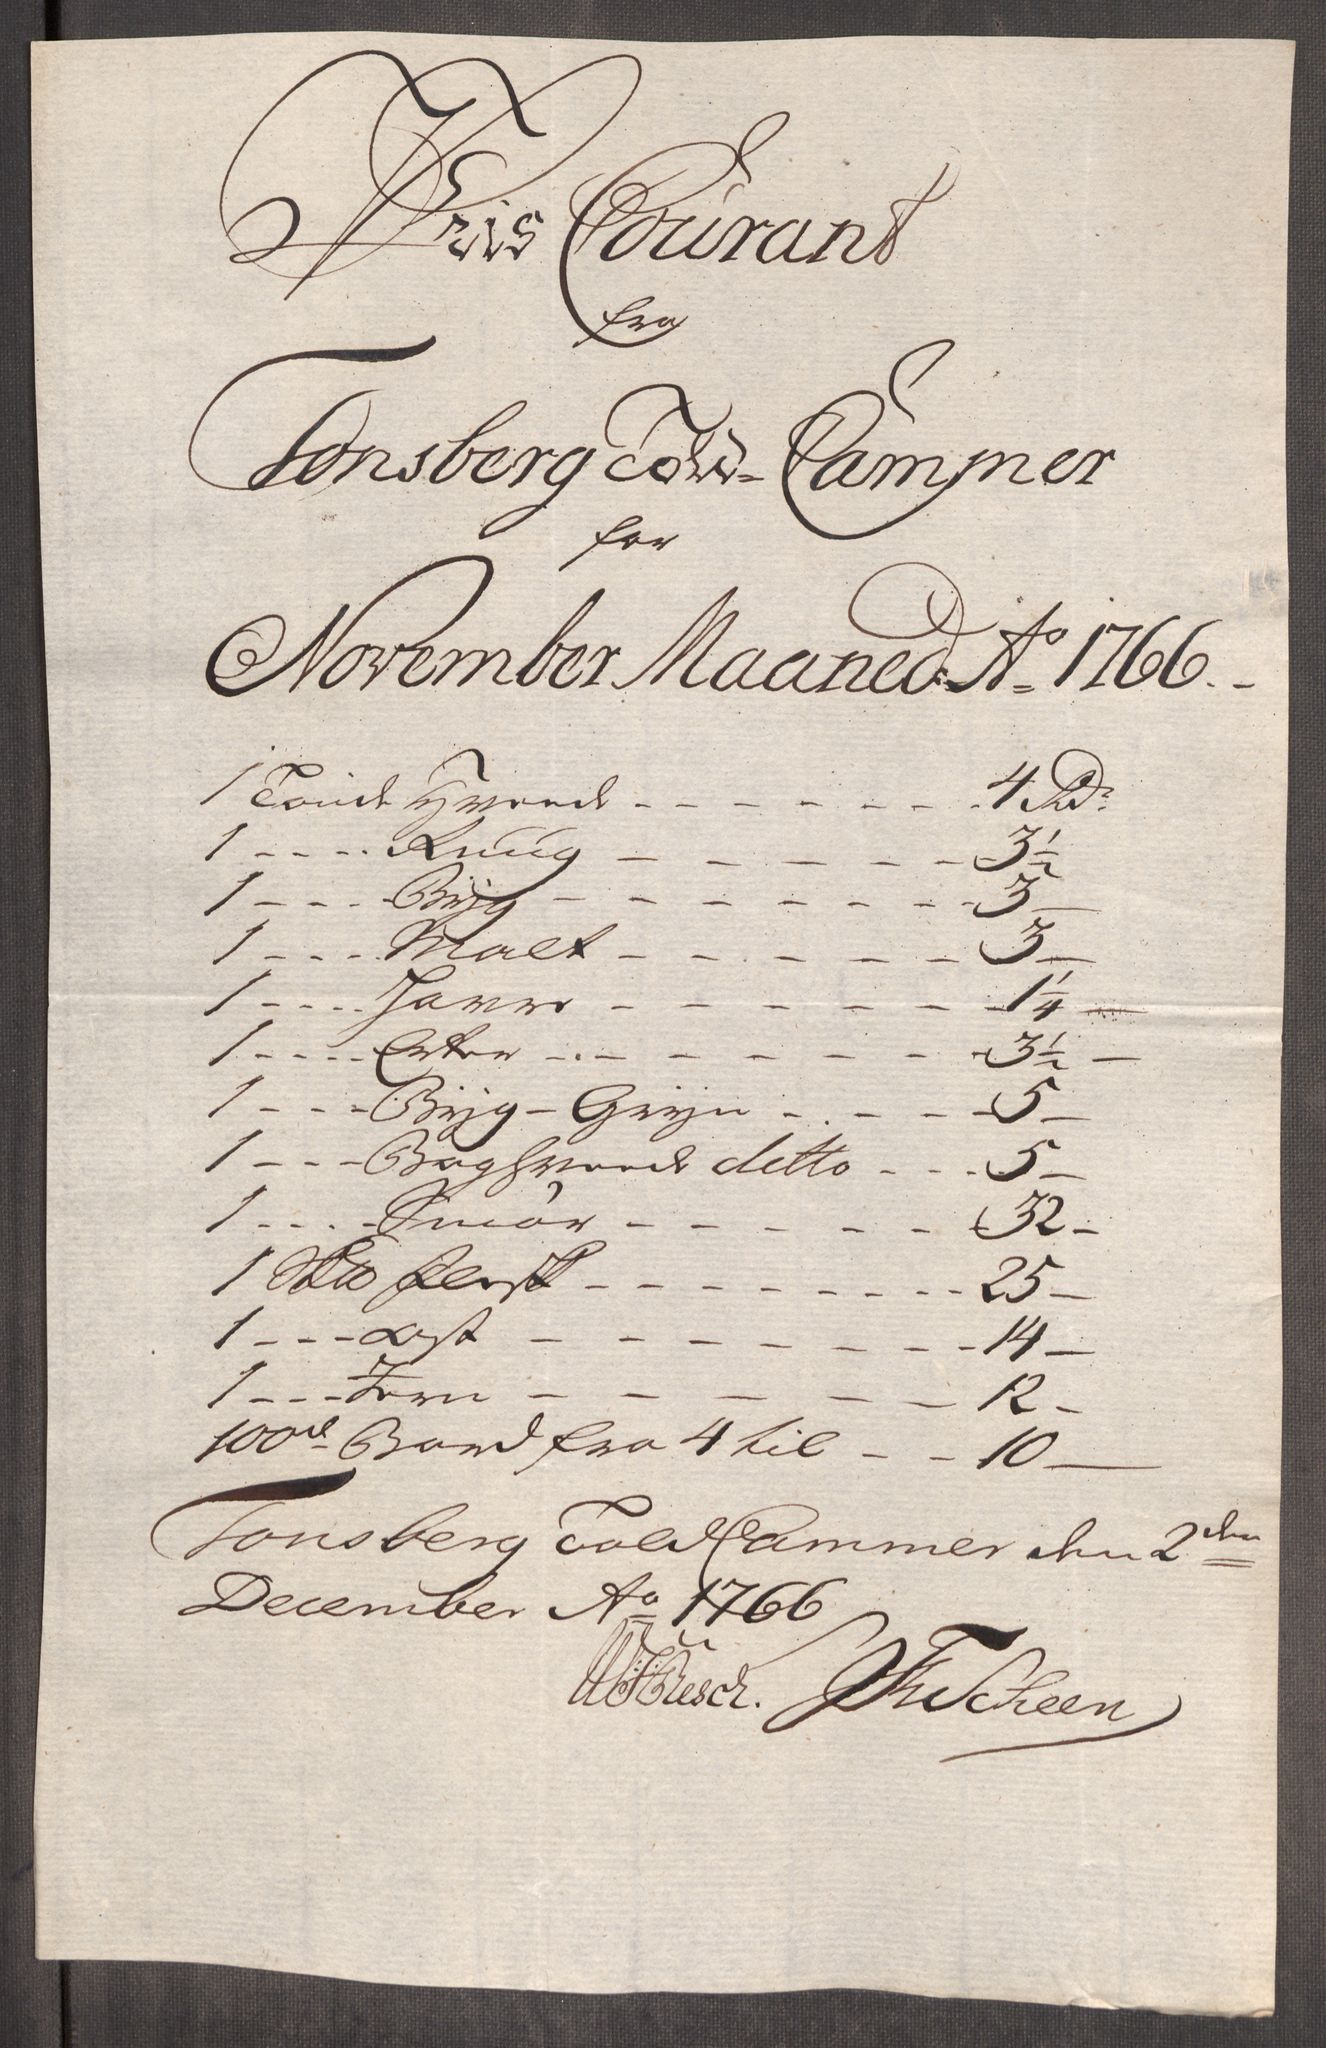 Pris Courant
fra
Tonsberg Told-Cammer
for
November Maaned Ao 1766.
1 Tønde Hvede - - - - - - - 4 Rdr
1 - - - - Ruug - - - - - 3 1/2
1 - - - - Byg - - - - - - - - 3 -
1 - - - - Malt - - - - - - 3 -
1 - - - - Havre - - - - - 1 1/4 -
1 - - - - Erter - - - - - - 3 1/2 -
1 - - - Byg-Gryn - - - - 5 -
1 - - - Boghvede ditto - - - 5 -
1 - - - - Smør - - - - - - 32 -
1 flesk - - - - - - - - 25 -
1 - - - Ost - - - - - - 14 -
1 - - - Jern - - - - - 12 -
100de Bord fra 4 til - - 10 -
Tonsberg Told Cammer den 2den
December Ao 1766
Resch. Scheen